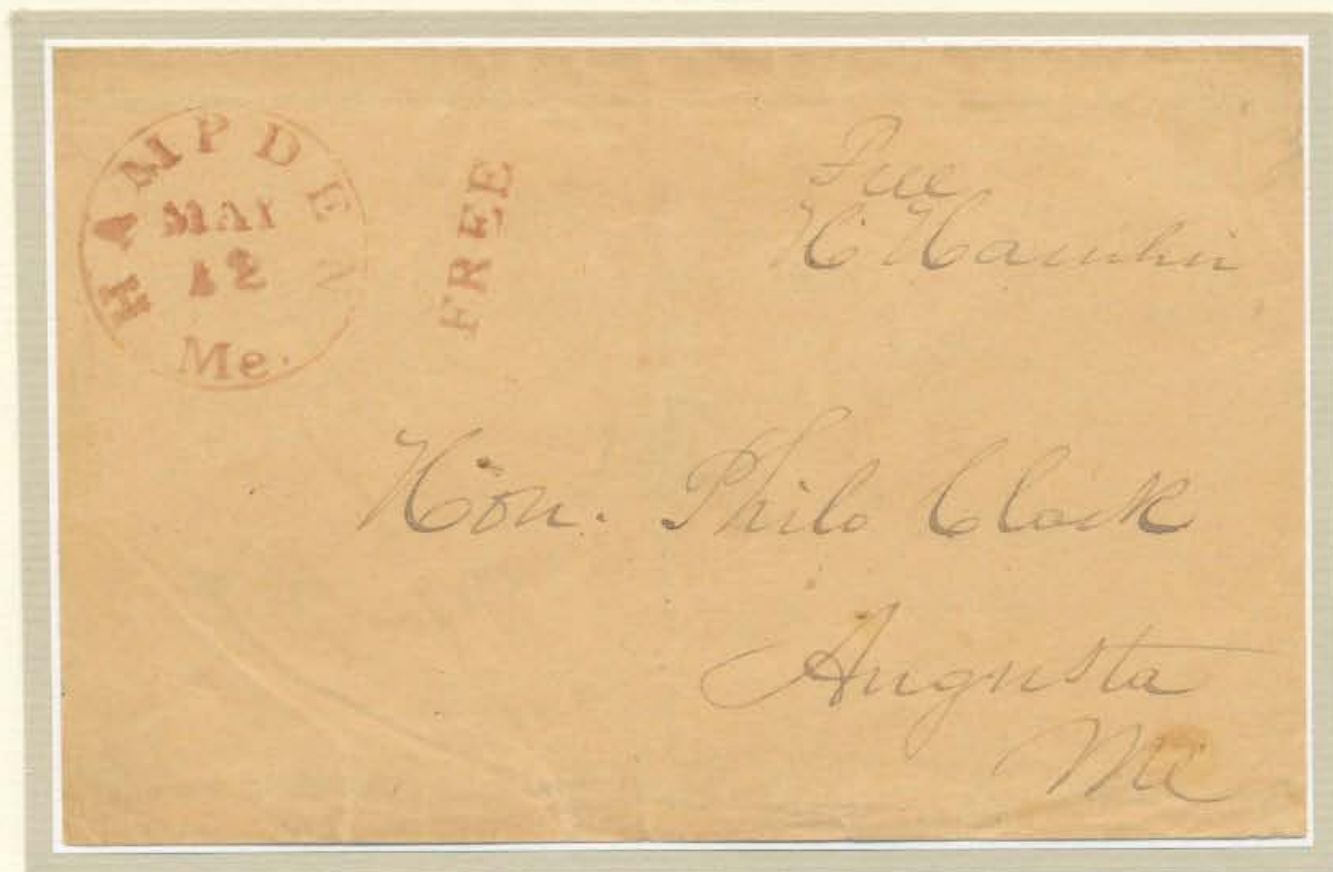 HAMPDEN
MAY
12
Me.
FREE
Free
H Hamlin
Hon. Philo Clark
Augusta
Me